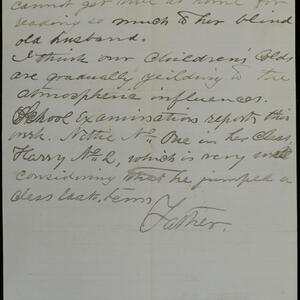 cannot get time at home for
reading so much to her blind
old husband.
I think our Children's Colds
are gradually yeilding to the
atmospheric influences.
School Examination reports this
week. Nettie No. One in her Class,
Harry No. 2, which is very well
considering that he jumped a
class last term
Father.